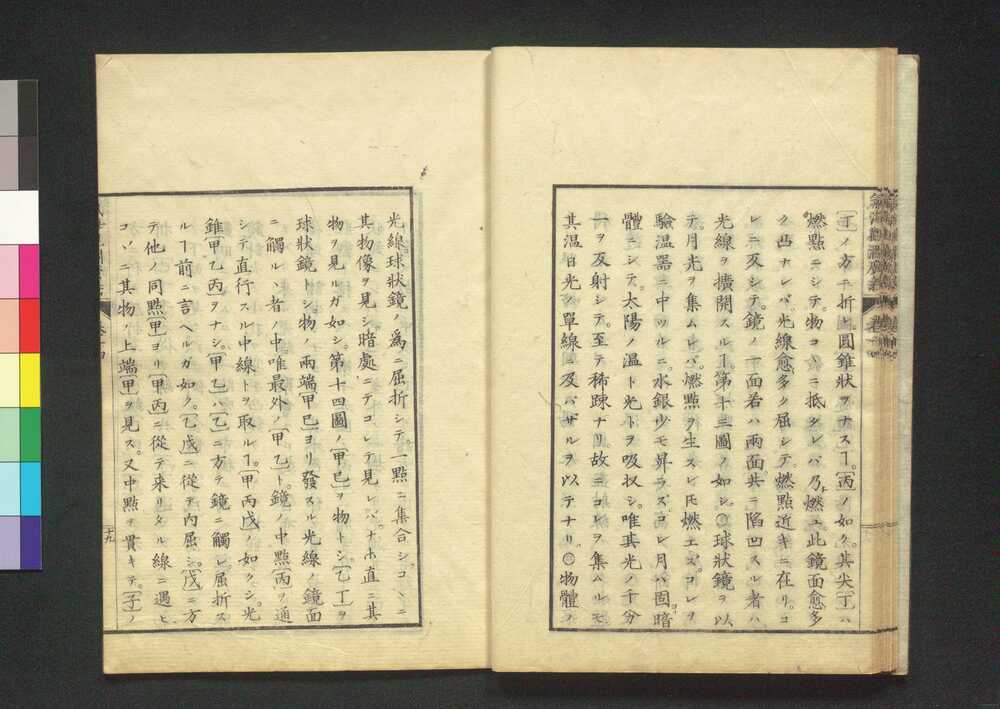 〔丁〕ノ方ニ折ヒ。圓錐狀ヲナスヿ。〔丙〕ノ如ク。其尖〔丁〕ハ
燃點ニシテ。物コヽニ抵タレバ乃燃ユ。此鏡面愈多
ク凸ナレバ。光線愈多ク屈シテ。燃點近キニ在リ。コ
レニ反シテ。鏡ノ一面若ハ兩面。共ニ陷凹スル者ハ
光線ヲ擴開スルヿ。第十三圖ノ如シ。〇球狀鏡ヲ以
テ。月光ヲ集ムレバ。燃點ヲ生ズレ𪜈燃エズ。コレヲ
驗溫器ニ中ツルニ。水銀少モ昇ラズ。コレ月ハ固暗
體ニシテ。太陽ノ溫ト光トヲ吸収シ。唯其光ノ千分
一ヲ反射シテ。至テ稀踈ナリ。故ニコレヲ集ムルモ
其溫日光ノ單線ニ及バザルヲ以テナリ。〇物體ノ
光線球狀鏡ノ爲ニ屈折シテ。一點ニ集合シ。コヽニ
其物像ヲ見シ。暗處ニテコレヲ見レバ。ナホ直ニ其
物ヲ見ルガ如シ。第十四圖ノ〔甲己〕ヲ物トシ。〔乙丁〕ヲ
球狀鏡トシ。物ノ兩端甲己ヨリ發スル光線ノ鏡面
ニ觸ルヽ者ノ中。唯最外ノ〔甲乙〕ト。鏡ノ中點〔丙〕ヲ通
シテ直行スル中線トヲ取ルヿ。〔甲丙戊〕ノ如クシ。光
錐〔甲乙丙〕ヲナシ。〔甲乙〕ハ〔乙〕ニ方テ鏡ニ觸レ屈折ス
ルヿ前ニ言ヘルガ如ク。〔乙戊〕ニ從テ內屈シ。〔戊〕ニ方
テ他ノ同點〔甲〕ヨリ〔甲丙〕ニ從テ來リタル線ニ遇ヒ
コヽニ其物ノ上端〔甲〕ヲ見ス。又中點ヲ貫キテ。〔子〕ノ